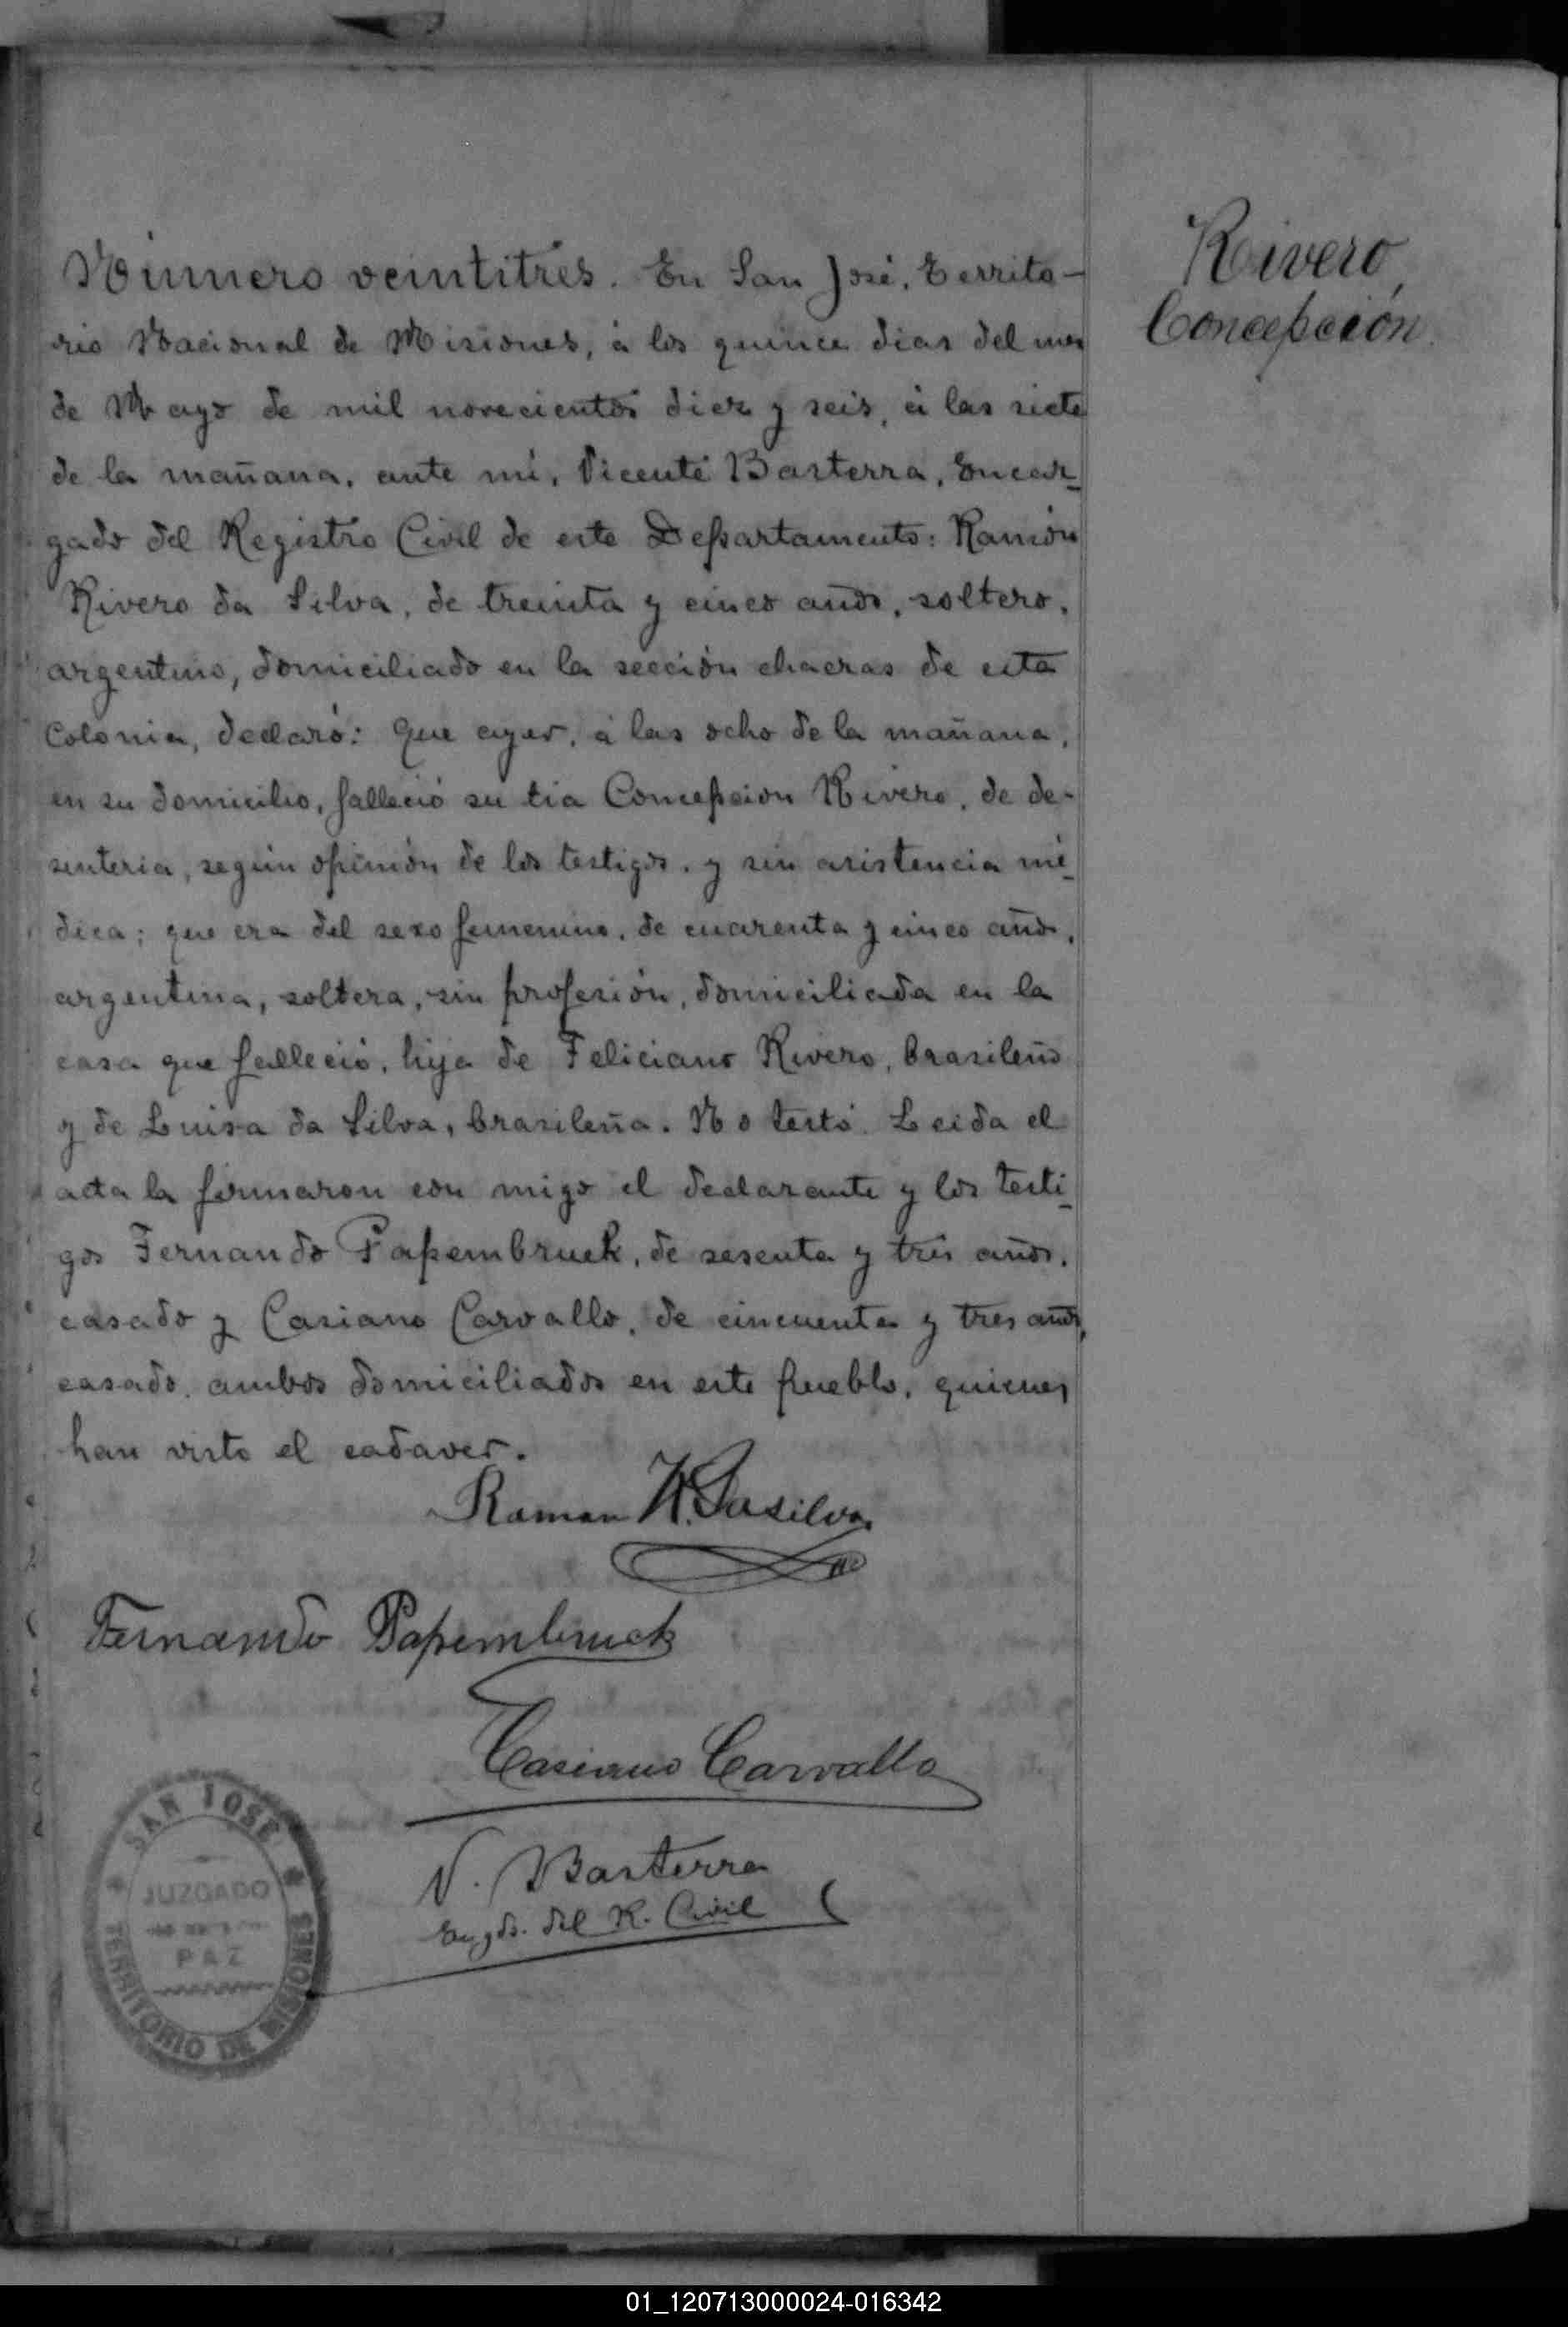 Número veintitres. En San José, Territo-
rio Nacional de Misiones, á los quince dias del mes
de Mayo de mil novecientos diez y seis, á las siete
de la mañana, ante mí, Vicente Basterra, Encar-
gado del Registro Civil de este Departamento: Ramón
Rivero da Silva, de treinta y cinco años, soltero,
argentino, domiciliado en la sección chacras de esta
Colonia, declaró: Que ayer, á las ocho de la mañana,
en su domicilio, falleció su tia Concepcion Rivero, de de-
senteria, según opinión de los testigos, y sin asistencia mé-
dica; que era del sexo femenino, de cuarenta y cinco años,
argentina, soltera, sin profesión, domiciliada en la
casa que falleció, hija de Feliciano Rivero, brasileño
y de Luisa da Silva, brasileña. No testó. Leida el
acta la firmaron con migo el declarante y los testi-
gos Fernando Papembruck, de sesenta y tres años,
casado y Casiano Carvallo, de cincuenta y tres años,
casado, ambos domiciliados en este pueblo, quienes
han visto el cadaver.
Rivero,
Concepción.
Ramon R. Dasilva
Fernando Papembruck
Casiano Carvallo
V. Basterra
Engdo. del R. Civil
SAN JOSE
JUZGADO
PAZ
TERRITORIO DE MISIONES
01_120713000024-016342